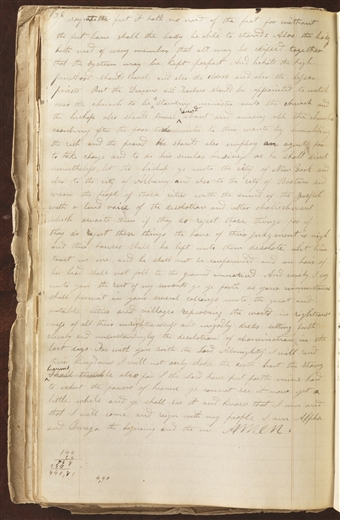 say unto the feet it hath no need of the feet for without
the feet how shall the body be able to stand Also the body
hath need of every member that all may be edified together
that the system may be kept perfect And behold the high
priesthood should travel and also the elders and also the lesser
priests But the Deacons and Teachers should be appointed to watch
over the church to be standing ministers unto the church and
the bishop also should travel round about and among all the churches
searching after the poor to administer to their wants by humbling
the rich and the proud he should also employ an agent for
to take charge and to do his secular business as he shall direct
nevertheless let the bishop go unto the city of New York and
also to the city of Albany and also to the city of Boston and
warn the people of those cities with the sound of the gospel
with a loud voice of the desolation and utter abolishment
which awaits them if they do reject these things for if
they do reject these things the hour of their judgement is nigh
and their house shall be left unto them desolate let him
trust in me and he shall not be confounded and an hair of
his head shall not fall to the ground unnoticed And verily I say
unto you the rest of my servants go ye forth as your circumstances
shall permit in your several callings unto the great and
notable cities and villages reproving the world in righteous
ness of all their unrighteous and ungodly deeds setting forth
clearly and understandingly the desolation of abomination in the
last days For with you saith the Lord Almighty I will rend
their kingdoms I will not only shake the earth but the starry
heavens shall tremble also for I the Lord have put forth mine hand
to exert the powers of heaven ye cannot see it now yet a
little while and ye shall see it and know that I am and
that I will come and reign with my people I am Alpha
and Omega the begining and the end AMEN.
490